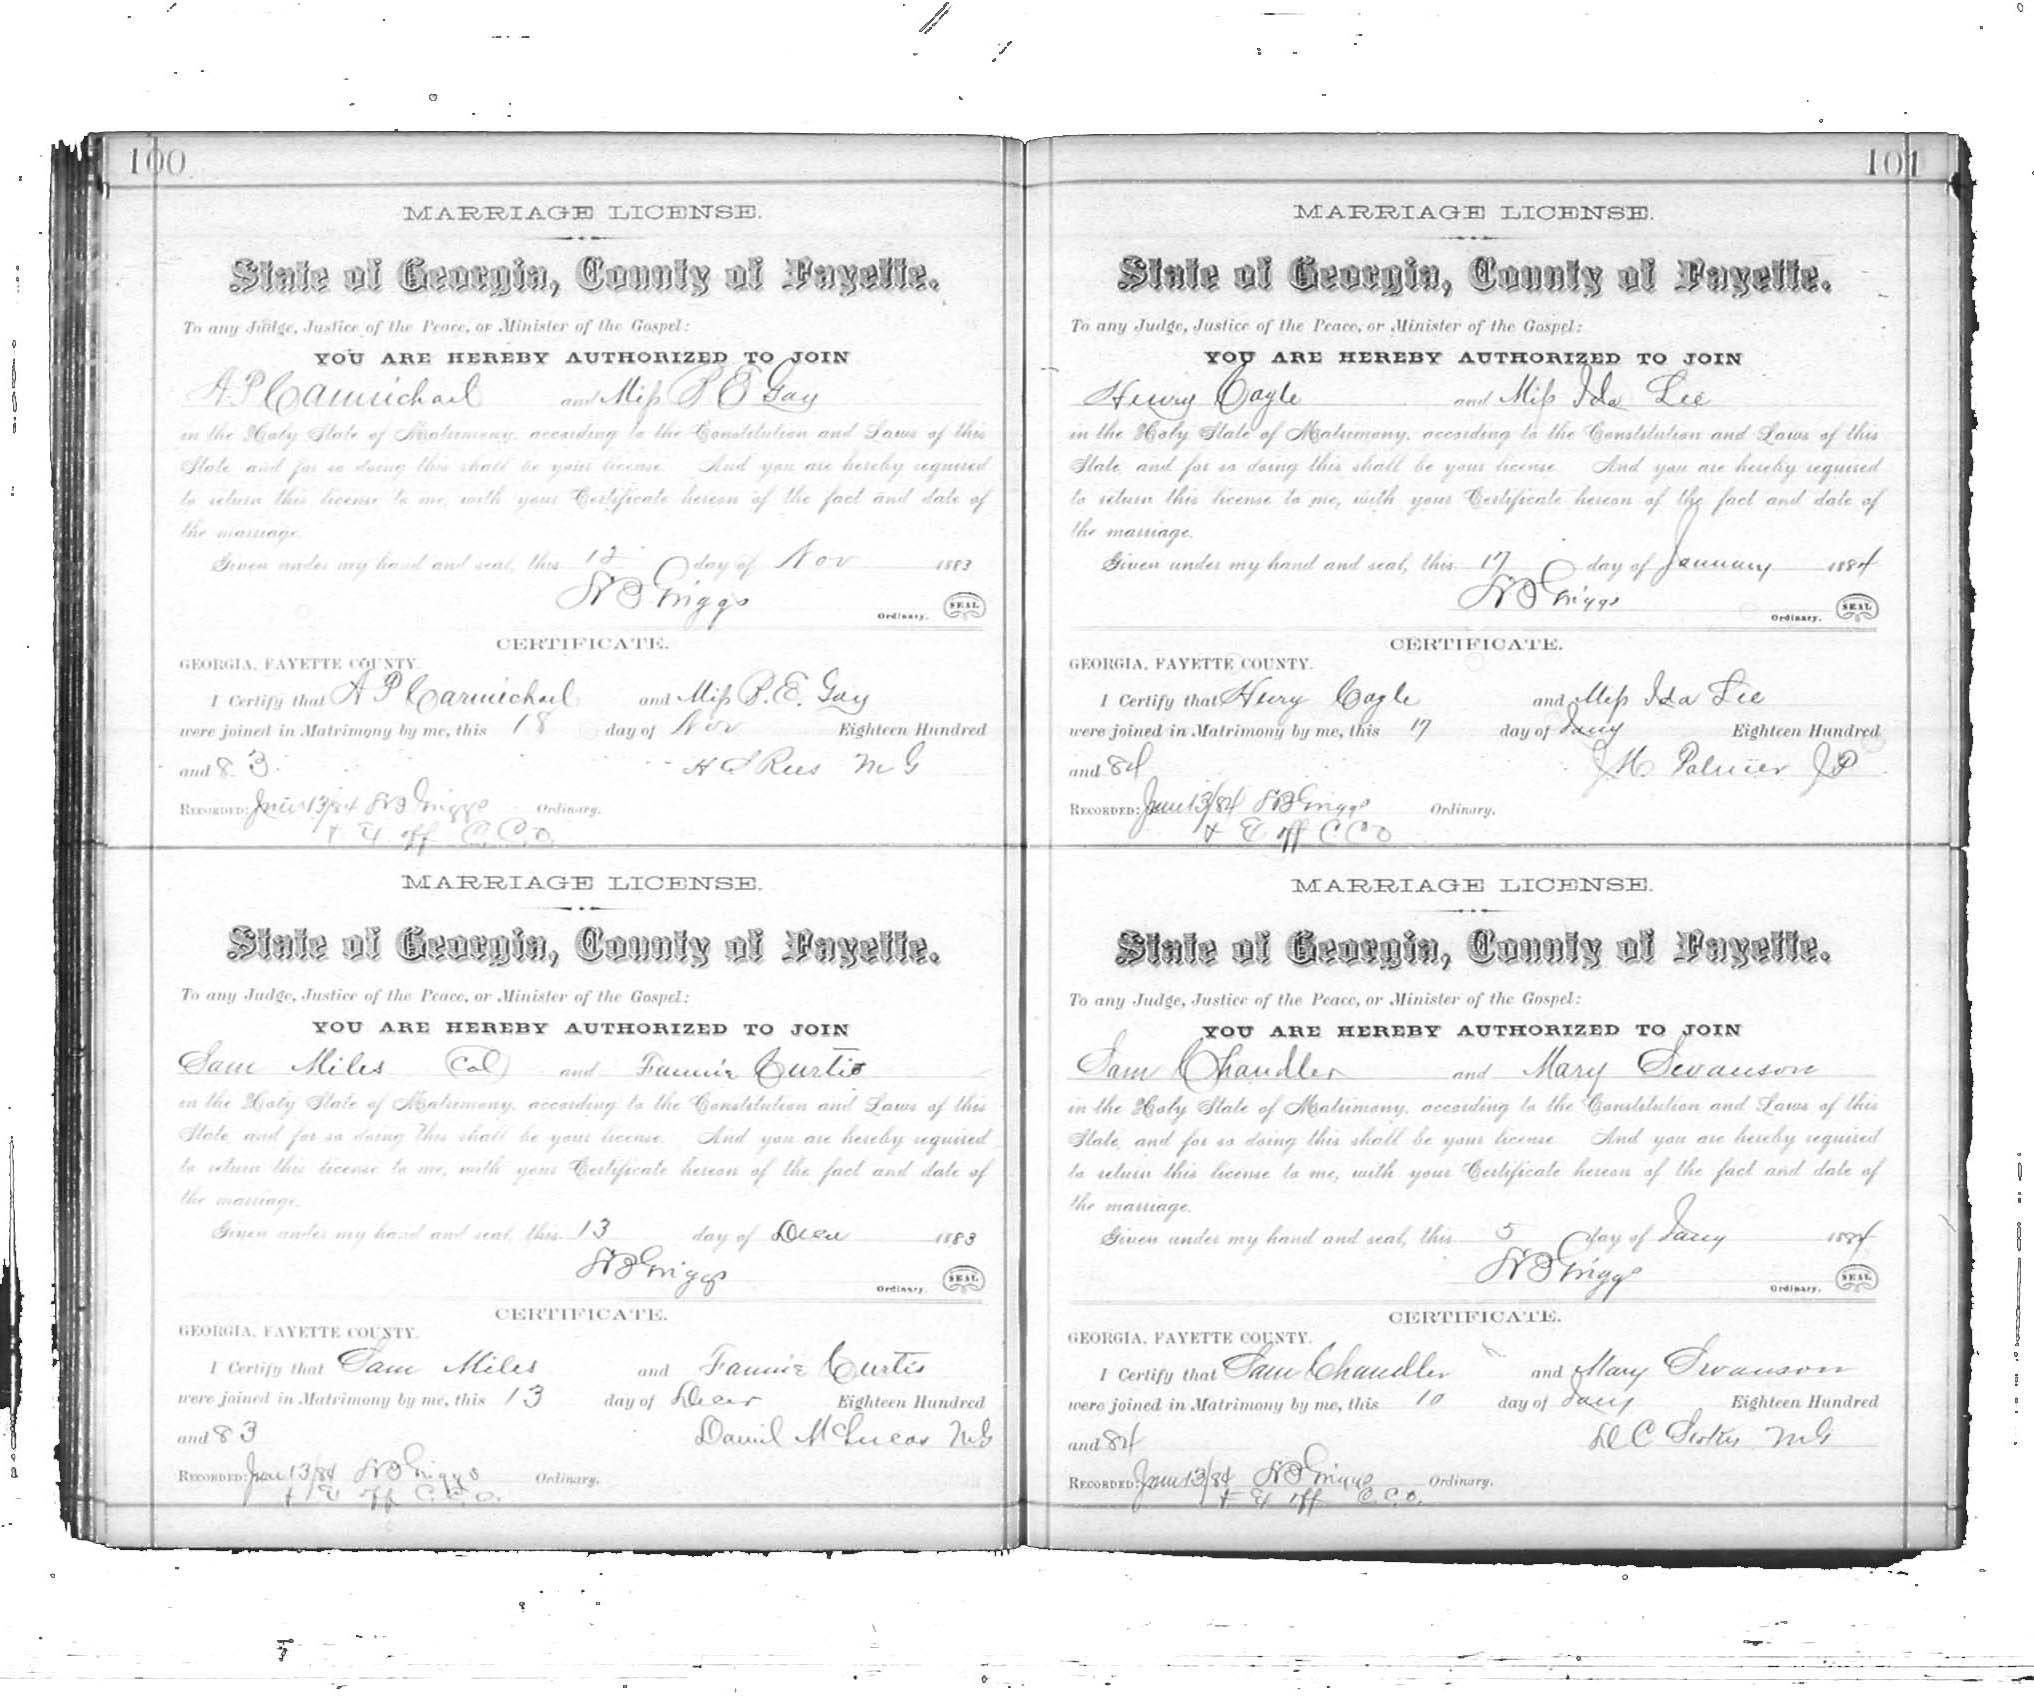 100
MARRIAGE LICENSE.
State of Georgia, County of Fayette.
To any Judge, Justice of the Peace, or Minister of the Gospel:
YOU ARE HEREBY AUTHORIZED TO JOIN
A. P. Carmichael and Miss P E Gay
in the Holy State of Matrimony, according to the Constitution and Laws of this
State, and for so doing this shall be your license. And you are hereby required
to return this license to me, with your Certificate hereon of the fact and date of
the marriage.
Given under my hand and seal, this 12 day of Nov 1883
Griggs
Ordinary. SEAL
CERTIFICATE.
GEORGIA, FAYETTE COUNTY.
I Certify that A P Carmichael and Miss P. E. Gay
were joined in Matrimony by me, this 18 day of Nov Eighteen Hundred
and 83. H S Rees M G
RECORDED: 13/84 Griggs Ordinary.
off C.C.O.
MARRIAGE LICENSE.
State of Georgia, County of Fayette.
To any Judge, Justice of the Peace, or Minister of the Gospel:
YOU ARE HEREBY AUTHORIZED TO JOIN
Sam Miles (Col) and Fannie Curtis
in the Holy State of Matrimony, according to the Constitution and Laws of this
State, and for so doing this shall be your license. And you are hereby required
to return this license to me, with your Certificate hereon of the fact and date of
the marriage.
Given under my hand and seal, this 13 day of Decr 1883
Griggs
Ordinary. SEAL
CERTIFICATE.
GEORGIA, FAYETTE COUNTY.
I Certify that Sam Miles and Fannie Curtis
were joined in Matrimony by me, this 13 day of Decr Eighteen Hundred
and 83 Daniel McLucas M G
RECORDED: 13/84 Griggs Ordinary.
off C.C.O.
101
MARRIAGE LICENSE.
State of Georgia, County of Fayette.
To any Judge, Justice of the Peace, or Minister of the Gospel:
YOU ARE HEREBY AUTHORIZED TO JOIN
Henry Cagle and Miss Ida Lee
in the Holy State of Matrimony, according to the Constitution and Laws of this
State, and for so doing this shall be your license. And you are hereby required
to return this license to me, with your Certificate hereon of the fact and date of
the marriage.
Given under my hand and seal, this 17 day of January 1884
Griggs
Ordinary. SEAL
CERTIFICATE.
GEORGIA, FAYETTE COUNTY.
I Certify that Henry Cagle and Miss Ida Lee
were joined in Matrimony by me, this 17 day of Jany Eighteen Hundred
and 84 J H Palmer J P
RECORDED: 13/84 Griggs Ordinary.
off C C O
MARRIAGE LICENSE.
State of Georgia, County of Fayette.
To any Judge, Justice of the Peace, or Minister of the Gospel:
YOU ARE HEREBY AUTHORIZED TO JOIN
Sam Chandler and Mary Swanson
in the Holy State of Matrimony, according to the Constitution and Laws of this
State, and for so doing this shall be your license. And you are hereby required
to return this license to me, with your Certificate hereon of the fact and date of
the marriage.
Given under my hand and seal, this 5 day of Jany 1884
Griggs
Ordinary. SEAL
CERTIFICATE.
GEORGIA, FAYETTE COUNTY.
I Certify that Sam Chandler and Mary Swanson
were joined in Matrimony by me, this 10 day of Jany Eighteen Hundred
and 84 M G
RECORDED: 13/84 Griggs Ordinary.
off C.C.O.